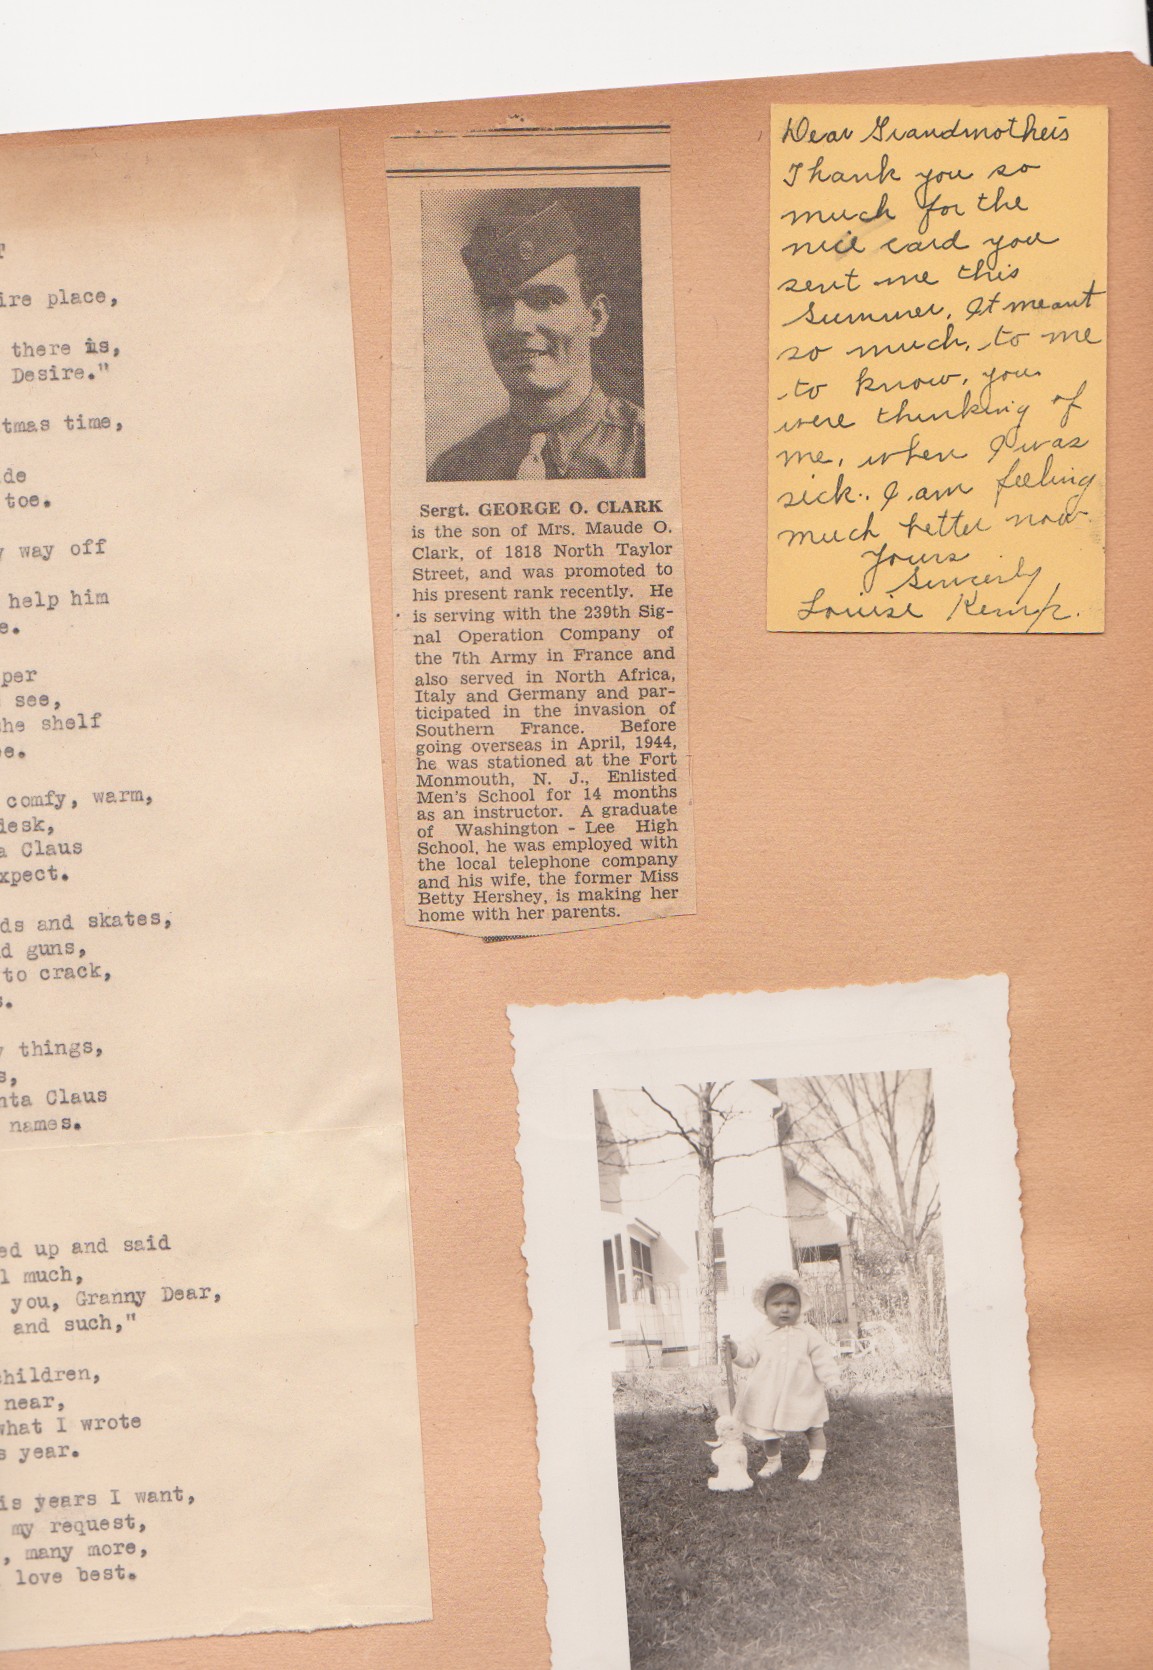 ire place,
there is,
Desire."
tmas time,
de
toe.
way off
help him
e.
per
see,
he shelf
ee.
comfy, warm,
desk,
a Claus
xpect.
ds and skates,
d guns,
to crack,
s.
things,
s,
nta Claus
names.
ed up and said
l much,
you, Granny Dear,
and such,"
children,
near,
what I wrote
s year.
is years I want,
my request,
, many more,
love best.
Sergt. GEORGE O. CLARK
is the son of Mrs. Maude O.
Clark, of 1818 North Taylor
Street, and was promoted to
his present rank recently. He
is serving with the 239th Sig-
nal Operation Company of
the 7th Army in France and
also served in North Africa,
Italy and Germany and par-
ticipated in the invasion of
Southern France. Before
going overseas in April, 1944,
he was stationed at the Fort
Monmouth, N. J., Enlisted
Men's School for 14 months
as an instructor. A graduate
of Washington - Lee High
School, he was employed with
the local telephone company
and his wife, the former Miss
Betty Hershey, is making her
home with her parents.
Dear Grandmothers
Thank you so
much for the
nice card you
sent me this
Summer. It meant
so much, to me
to know, you
were thinking of
me, when I was
sick. I am feeling
much better now
Yours
Sincerly
Louise Kemp.